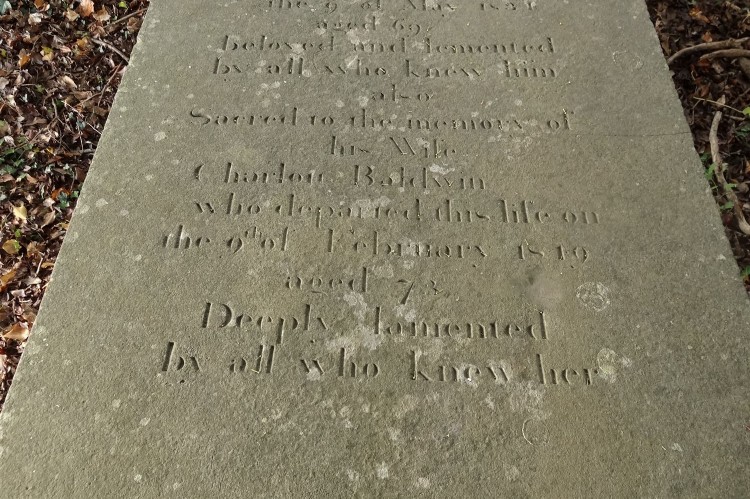 the 9 of May
aged 69
beloved and lamented
by all who knew him
also
Sacred to the memory of
his Wife
Baldwin
who departed this life on
the 9th of February
aged 73
Deeply lamented
by all who knew her